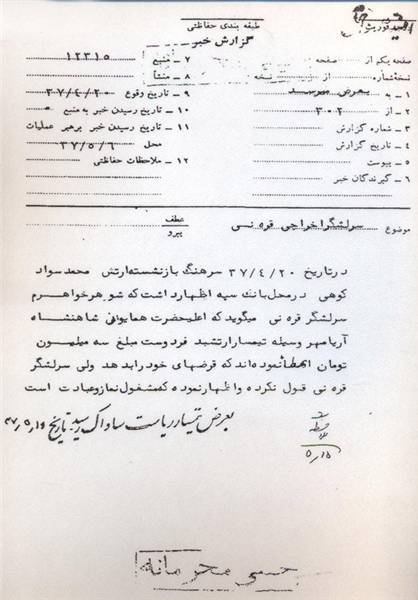 طبقه بندی حفاظتی
گزارش خبر
صفحه یکم از صفحه
نسخه شماره از نسخه
۱ ـ به بعرض میرسد
۲ ـ از ۳۰۲
۳ ـ شماره گزارش
۴ ـ تاریخ گزارش
۵ ـ پیوست
۶ ـ گیرندگان خبر
۷ ـ منبع ۱۲۳۱۵
۸ ـ منشأ
۹ ـ تاریخ وقوع ۳۷/۴/۲۰
۱۰ ـ تاریخ رسیدن خبر به منبع
۱۱ ـ تاریخ رسیدن خبر برهبر عملیات
محل ۳۷/۵/۶
۱۲ ـ ملاحظات حفاظتی
موضوع سرلشگر اخراجی قره نی
عطف
پیرو
در تاریخ ۳۷/۴/۲۰ سرهنگ بازنشسته ارتش محمد سواد
کوهی در محل بانک سپه اظهار داشت که شوهر خواهرم
سرلشگر قره نی میگوید که اعلیحضرت همایونی شاهنشاه
آریامهر وسیله تیمسار ارتشبد فردوست مبلغ سه میلیون
تومان اعطا نموده اند که قرضهای خود را بدهد ولی سرلشگر
قره نی قبول نکرده و اظهار نموده که مشغول نماز و عبادت است
بعرض تیمسار ریاست ساواک رسید تاریخ ۳۷/۵/۱۵
۵/۱۵
خیلی محرمانه